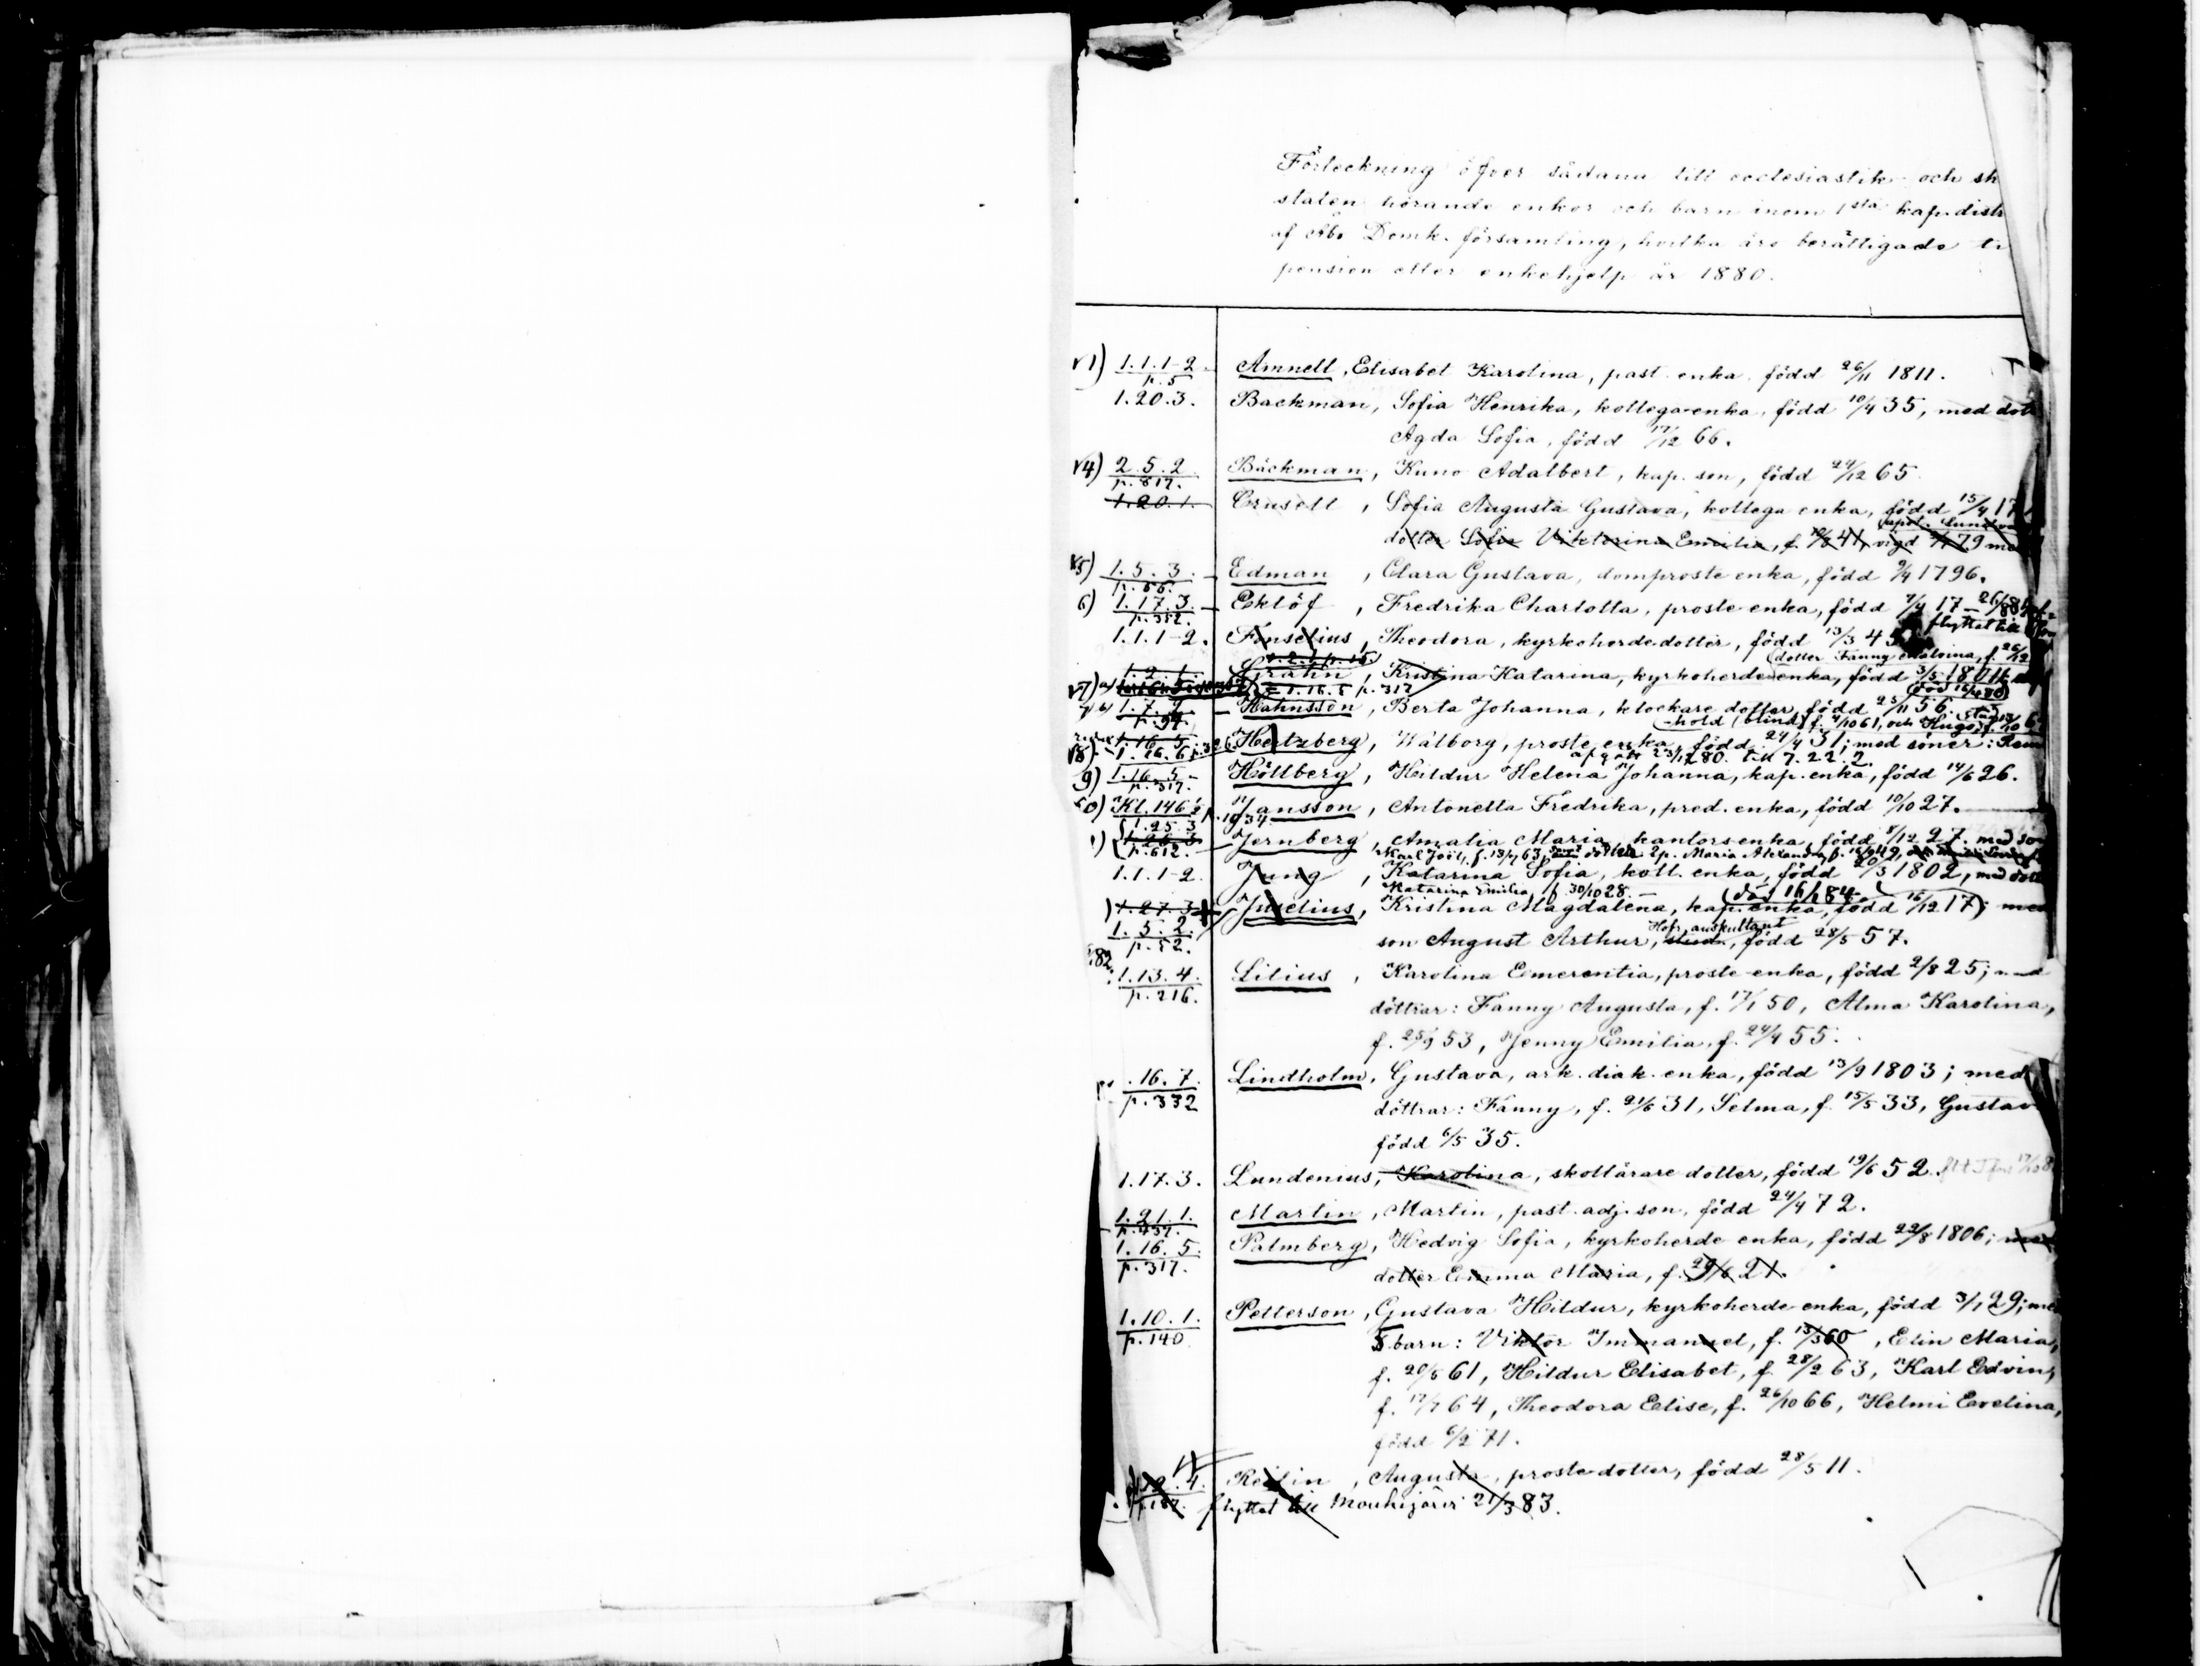 Förteckning öfver sådana till ecclesiastik- och sk
staten hörande enkor och barn inom 1sta kap. distr
af Åbo Domk. församling, hvilka äro berättigade ti
pension eller enkehjelp år 1880.
1) 1.1.1-2 p. 5 Amnell, Elisabet Karolina, past. enka, född 26/11 1811.
1.20.3. Backman, Sofia Henrika, kollega-enka, född 10/4 35, med dott
Agda Sofia, född 17/12 66.
4) 2.5.2. p. 817. Bäckman, Kuno Adalbert, kap. son, född 24/12 65.
1.20.1. Crusell, Sofia Augusta Gustava, kollega enka, född 15/4 17
dotter Sofie Viktorina Emilia, f. 41, vigd 79 med
5) 1.5.3. p. 55. Edman, Clara Gustava, domproste enka, född 9/4 1796.
6) 1.17.3. p. 352. Eklöf, Fredrika Charlotta, proste enka, född 7/4 17
flyttat till
1.1.1-2. Fonselius, Theodora, kyrkoherde dotter, född 13/3 45
dotter Fanny
1.2.1. Grahn, Kristina Katarina, kyrkoherde enka, född 3/5 1801
1.16.5 p. 317
1.7. p. 94. Hahnsson, Berta Johanna, klockare dotter, född 25/11 56.
hold (blind) f. 4/10 61, och Hugo, f.
8) 1.16.6 p. 326 Hertzberg, Wälborg, proste enka, född 24/4 31; med söner: Rein
afgått 23/12 80 till 7.22.2.
9) 1.16.5 p. 317. Höllberg, Hildur Helena Johanna, kap. enka, född 14/6 26.
Kl. 146 1/2 Jansson, Antonetta Fredrika, pred. enka, född 10/10 27.
1.25.3 p. 612. Jernberg, Amalia Maria, kantorsenka, född 8/12 27. med son
Karl Joël, f. 13/7 63, Maria Alexandra
1.1.1-2. Jung, Katarina Sofia, koll. enka, född 20/3 1802, med dott
Katarina Emilia f. 30/10 28.
död 16/1 84
1.27.3 Juselius, Kristina Magdalena, kap. enka, född 16/12 17; med
1.5.2. p. 52. Hofr. auskultant
son August Arthur, född 28/5 57.
1.13.4. p. 216. Lilius, Karolina Emerentia, proste enka, född 2/8 25; med
döttrar: Fanny Augusta, f. 17/1 50, Alma Karolina,
f. 25/9 53, Jenny Emilia, f. 24/4 55.
.16.7. p. 332 Lindholm, Gustava, ark. diak. enka, född 13/9 1803; med
döttrar: Fanny, f. 21/6 31, Selma, f. 15/5 33, Gustav
född 6/5 35.
1.17.3. Lundenius, Karolina, skollärare dotter, född 19/6 52.
1.21.1. p. 437. Martin, Martin, past. adj. son, född 24/4 72.
1.16.5. p. 317. Palmberg, Hedvig Sofia, kyrkoherde enka, född 22/8 1806; med
dotter Emma Maria, f. 29/6 21.
1.10.1. p. 140 Petterson, Gustava Hildur, kyrkoherde enka, född 3/1 29; med
5 barn: Viktor Immanuel, f. 13/3 60, Elin Maria,
f. 20/5 61, Hildur Elisabet, f. 28/2 63, Karl Edvin,
f. 17/7 64, Theodora Elise, f. 26/10 66, Helmi Evelina,
född 6/2 71.
4. Relin, Augusta, proste dotter, född 28/5 11.
flyttat till Mouhijärvi 21/3 83.